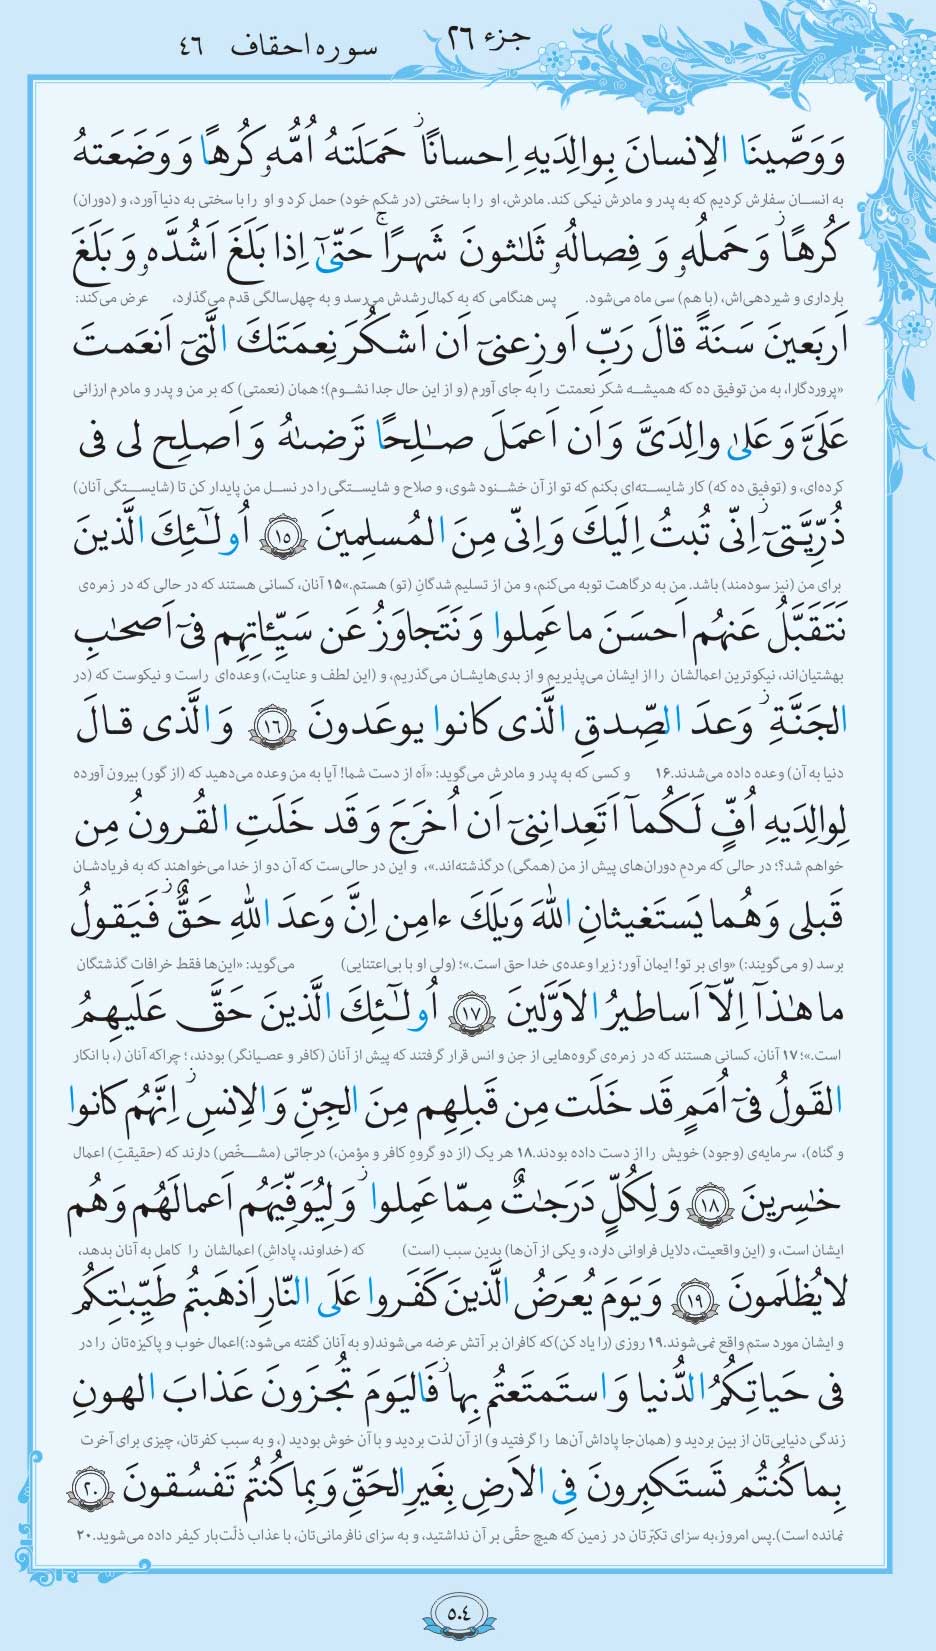 جزء ۲۶
سوره احقاف ۴۶
وَ وَصَّینَا الاِنسانَ بِوالِدَیهِ اِحسانًا حَمَلَتهُ اُمُّهُ کُرهًا وَ وَضَعَتهُ
به انسان سفارش کردیم که به پدر و مادرش نیکی کند. مادرش، او را با سختی (در شکم خود) حمل کرد و او را با سختی به دنیا آورد، و (دوران)
کُرهًا وَ حَملُهُ وَ فِصالُهُ ثَلٰثونَ شَهرًا حَتّیٰٓ اِذا بَلَغَ اَشُدَّهُ وَ بَلَغَ
بارداری و شیردهی‌اش، (با هم) سی ماه می‌شود. پس هنگامی که به کمال رشدش می‌رسد و به چهل‌سالگی قدم می‌گذارد، عرض می‌کند:
اَربَعینَ سَنَةً قالَ رَبِّ اَوزِعنیٓ اَن اَشکُرَ نِعمَتَكَ الَّتیٓ اَنعَمتَ
«پروردگارا، به من توفیق ده که همیشه شکر نعمتت را به جای آورم (و از این حال جدا نشوم)؛ همان (نعمتی) که بر من و پدر و مادرم ارزانی
عَلَیَّ وَ عَلیٰ والِدَیَّ وَ اَن اَعمَلَ صٰلِحًا تَرضٰىهُ وَ اَصلِح لی فی
کرده‌ای، و (توفیق ده که) کار شایسته‌ای بکنم که تو از آن خشنود شوی، و صلاح و شایستگی را در نسل من پایدار کن تا (شایستگی آنان)
ذُرِّیَّتیٓ اِنّی تُبتُ اِلَیكَ وَ اِنّی مِنَ المُسلِمینَ ۱۵ اُولٰٓئِكَ الَّذینَ
برای من (نیز سودمند) باشد. من به درگاهت توبه می‌کنم، و من از تسلیم شدگانِ (تو) هستم.»۱۵ آنان، کسانی هستند که در حالی که در زمره‌ی
نَتَقَبَّلُ عَنهُم اَحسَنَ ما عَمِلوا وَ نَتَجاوَزُ عَن سَیِّئاتِهِم فیٓ اَصحٰبِ
بهشتیان‌اند، نیکوترین اعمالشان را از ایشان می‌پذیریم و از بدی‌هایشان می‌گذریم، و (این لطف و عنایت،) وعده‌ای راست و نیکوست که (در
الجَنَّةِ وَعدَ الصِّدقِ الَّذی کانوا یوعَدونَ ۱۶ وَ الَّذی قالَ
دنیا به آن) وعده داده می‌شدند.۱۶ و کسی که به پدر و مادرش می‌گوید: «اَه از دست شما! آیا به من وعده می‌دهید که (از گور) بیرون آورده
لِوالِدَیهِ اُفٍّ لَکُمآ اَتَعِدانِنیٓ اَن اُخرَجَ وَ قَد خَلَتِ القُرونُ مِن
خواهم شد؟؛ در حالی که مردم دوران‌های پیش از من (همگی) درگذشته‌اند.»، و این در حالی‌ست که آن دو از خدا می‌خواهند که به فریادشان
قَبلی وَ هُما یَستَغیثانِ اللهَ وَیلَكَ ءامِن اِنَّ وَعدَ اللهِ حَقٌّ فَیَقولُ
برسد (و می‌گویند:) «وای بر تو! ایمان آور؛ زیرا وعده‌ی خدا حق است.»؛ (ولی او با بی‌اعتنایی) می‌گوید: «این‌ها فقط خرافات گذشتگان
ما هٰذآ اِلّآ اَساطیرُ الاَوَّلینَ ۱۷ اُولٰٓئِكَ الَّذینَ حَقَّ عَلَیهِمُ
است.»؛۱۷ آنان، کسانی هستند که در زمره‌ی گروه‌هایی از جن و انس قرار گرفتند که پیش از آنان (کافر و عصیانگر) بودند، ؛ چراکه آنان (، با انکار
القَولُ فیٓ اُمَمٍ قَد خَلَت مِن قَبلِهِم مِنَ الجِنِّ وَ الاِنسِ اِنَّهُم کانوا
و گناه)، سرمایه‌ی (وجود) خویش را از دست داده بودند.۱۸ هر یک (از دو گروهِ کافر و مؤمن،) درجاتی (مشخّص) دارند که (حقیقتِ) اعمال
خٰسِرینَ ۱۸ وَ لِکُلٍّ دَرَجٰتٌ مِمّا عَمِلوا وَ لِیُوَفِّیَهُم اَعمالَهُم وَ هُم
ایشان است، و (این واقعیت، دلایل فراوانی دارد، و یکی از آن‌ها) بدین سبب (است) که (خداوند، پاداش) اعمالشان را کامل به آنان بدهد،
لا یُظلَمونَ ۱۹ وَ یَومَ یُعرَضُ الَّذینَ کَفَروا عَلَی النّارِ اَذهَبتُم طَیِّبٰتِکُم
و ایشان مورد ستم واقع نمی‌شوند.۱۹ روزی (را یاد کن)که کافران بر آتش عرضه می‌شوند(و به آنان گفته می‌شود:)اعمال خوب و پاکیزه‌تان را در
فی حَیاتِکُمُ الدُّنیا وَ استَمتَعتُم بِها فَالیَومَ تُجزَونَ عَذابَ الهونِ
زندگی دنیایی‌تان از بین بردید و (همان‌جا پاداش آن‌ها را گرفتید و) از آن لذت بردید و با آن خوش بودید (، و به سبب کفرتان، چیزی برای آخرت
بِما کُنتُم تَستَکبِرونَ فِی الاَرضِ بِغَیرِ الحَقِّ وَ بِما کُنتُم تَفسُقونَ ۲۰
نمانده است).پس امروز،به سزای تکبّرتان در زمین که هیچ حقّی بر آن نداشتید، و به سزای نافرمانی‌تان، با عذاب ذلّت‌بار کیفر داده می‌شوید.۲۰
۵۰۴